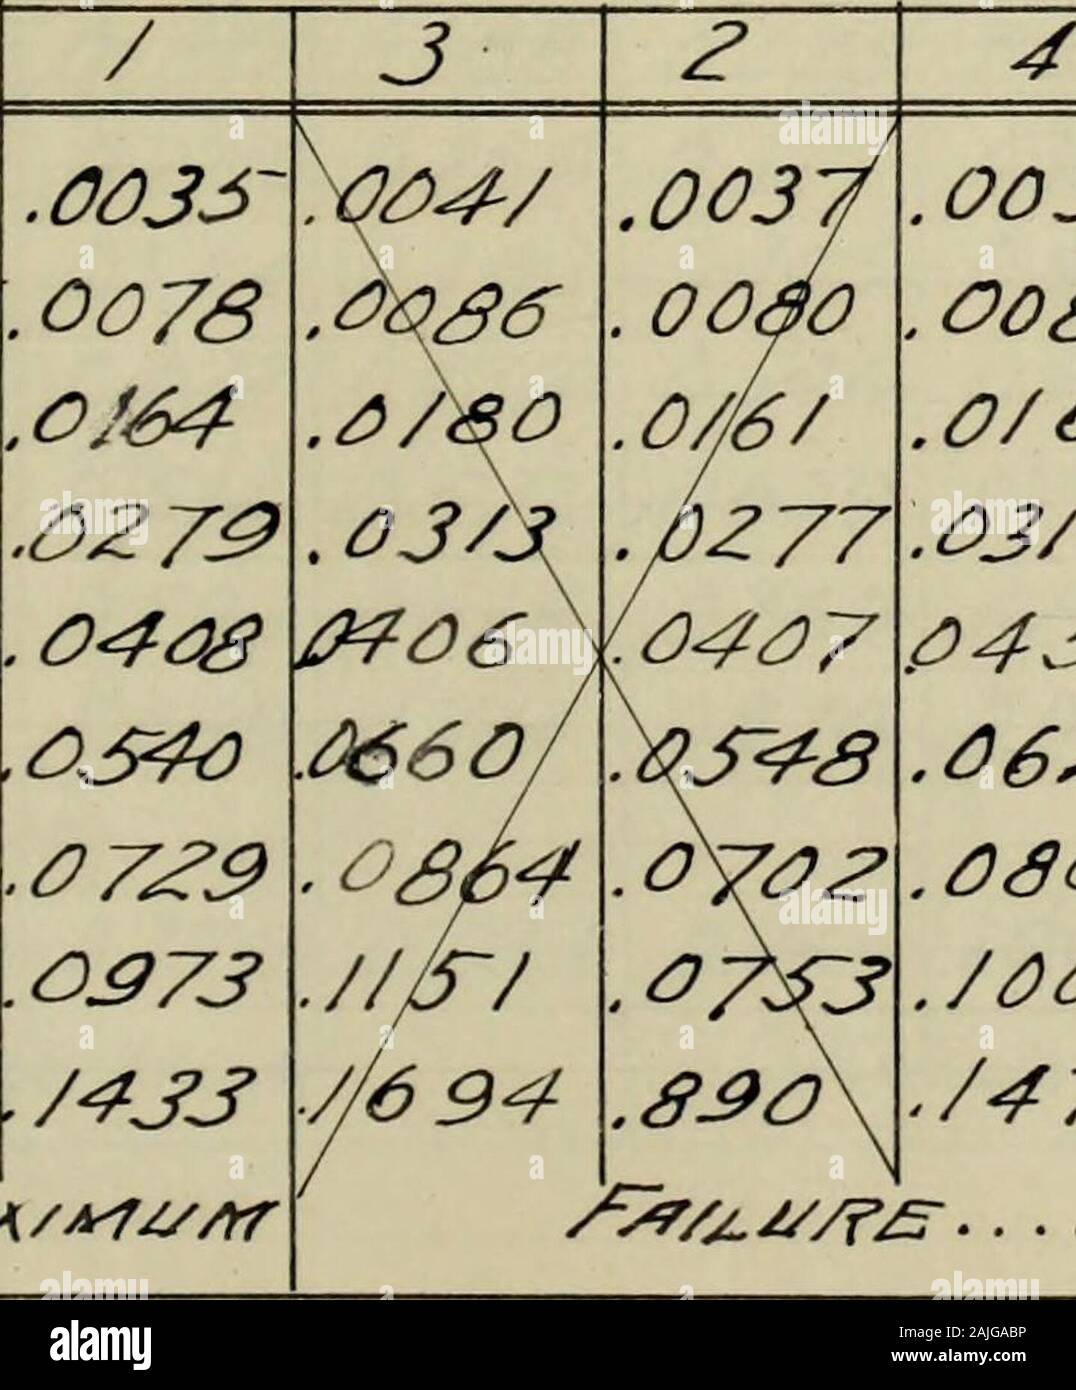 1 3 2 4
.0035 .0041 .0037 .00
.0078 .0086 .0080 .00
.0164 .0180 .0161 .01
.0279 .0313 .0277 .031
.0408 .0406 .0407 .043
.0540 .0660 .0548 .06
.0729 .0864 .0702 .08
.0973 .1151 .0753 .100
.1433 .1694 .890 .147
XIMUM FAILURE....
alamy
Image ID: 2AJGABP
www.alamy.com